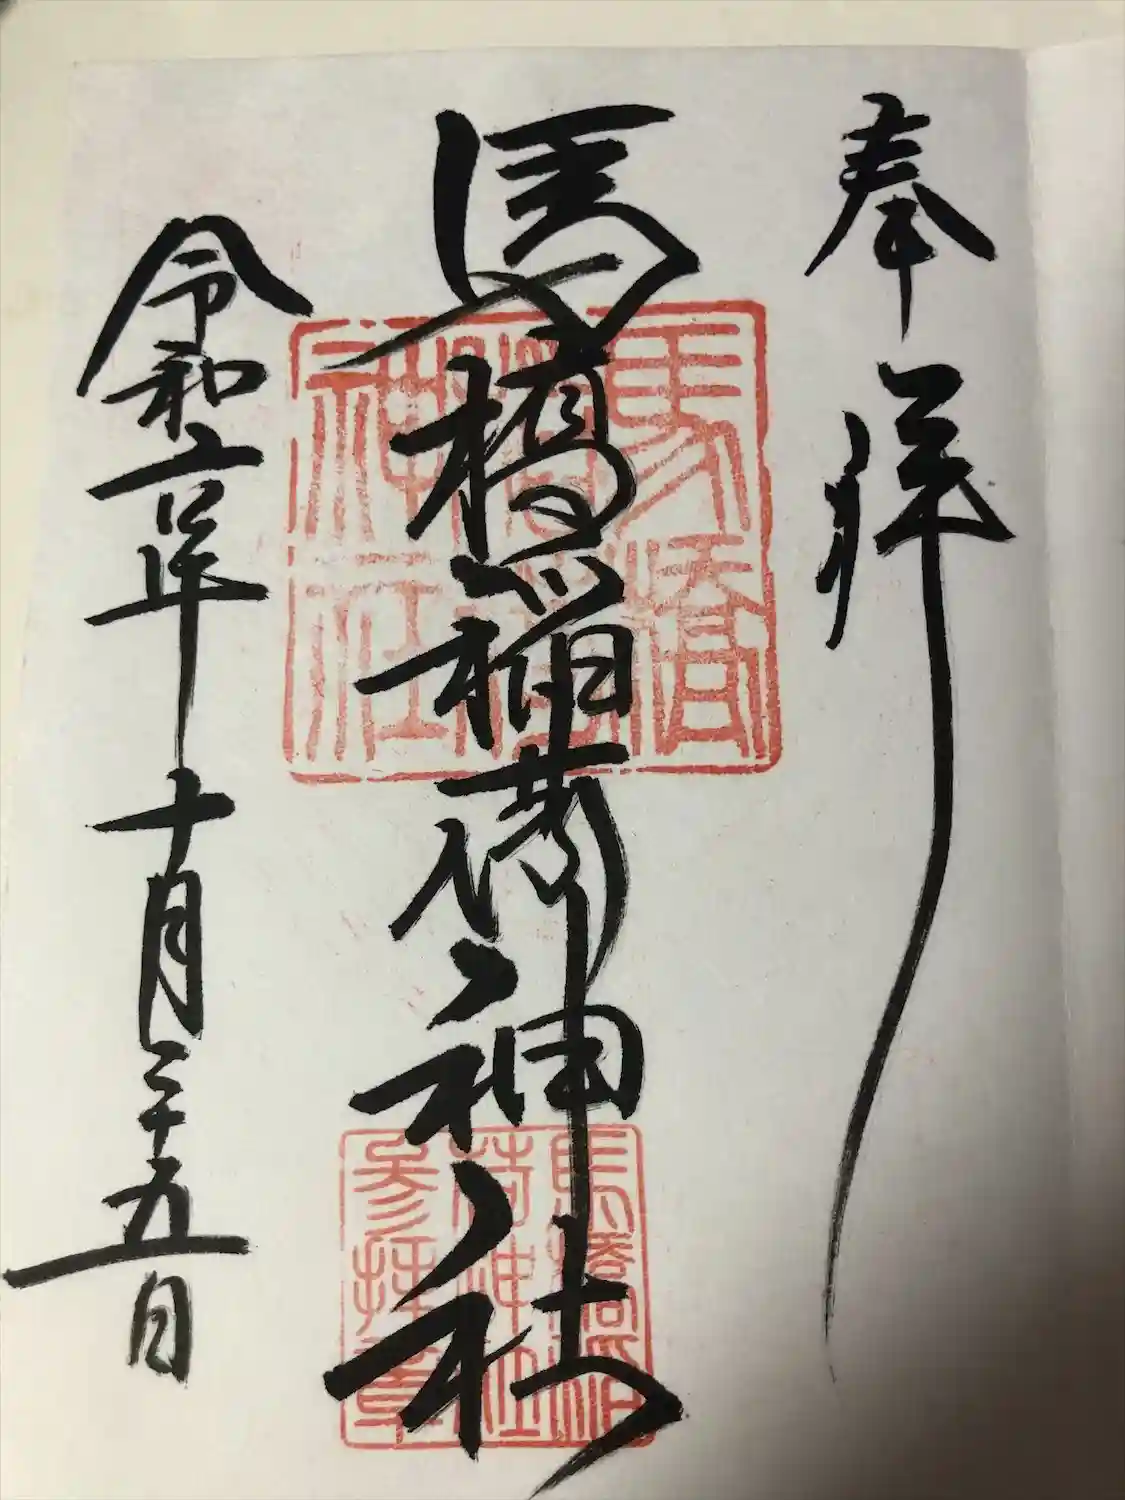 奉拝
馬橋稲荷神社
令和六年十月二十五日
馬橋稲荷神社
馬橋稲荷神社参拝章